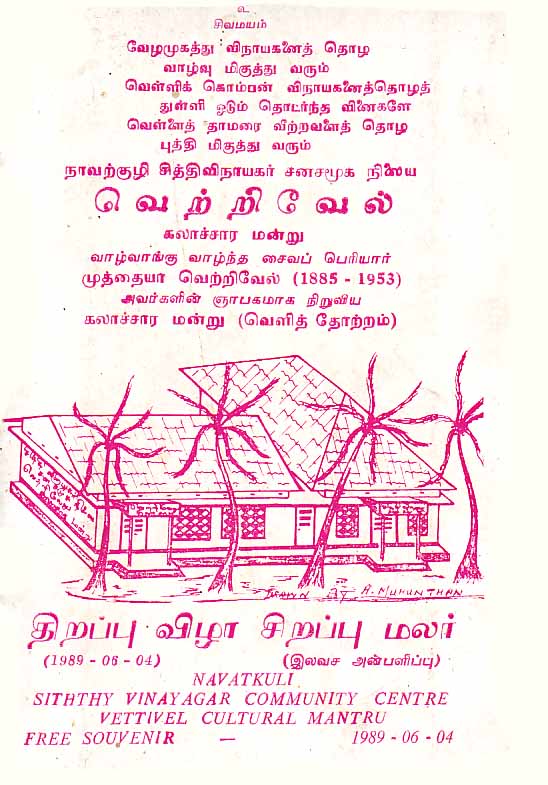 உ
சிவமயம்
வேழமுகத்து விநாயகனைத் தொழ
வாழ்வு மிகுத்து வரும்
வெள்ளிக் கொம்பன் விநாயகனைத்தொழத்
துள்ளி ஓடும் தொடர்ந்த வினைகளே
வெள்ளைத் தாமரை வீற்றவளைத் தொழ
புத்தி மிகுத்து வரும்
நாவற்குழி சித்திவிநாயகர் சனசமூக நிலைய
வெற்றிவேல்
கலாச்சார மன்று
வாழ்வாங்கு வாழ்ந்த சைவப் பெரியார்
முத்தையா வெற்றிவேல் (1885 - 1953)
அவர்களின் ஞாபகமாக நிறுவிய
கலாச்சார மன்று (வெளித் தோற்றம்)
DRAWN BY A. MUHUNTHAN
திறப்பு விழா சிறப்பு மலர்
(1989 - 06 - 04) (இலவச அன்பளிப்பு)
NAVATKULI
SITHTHY VINAYAGAR COMMUNITY CENTRE
VETTIVEL CULTURAL MANTRU
FREE SOUVENIR — 1989 - 06 - 04